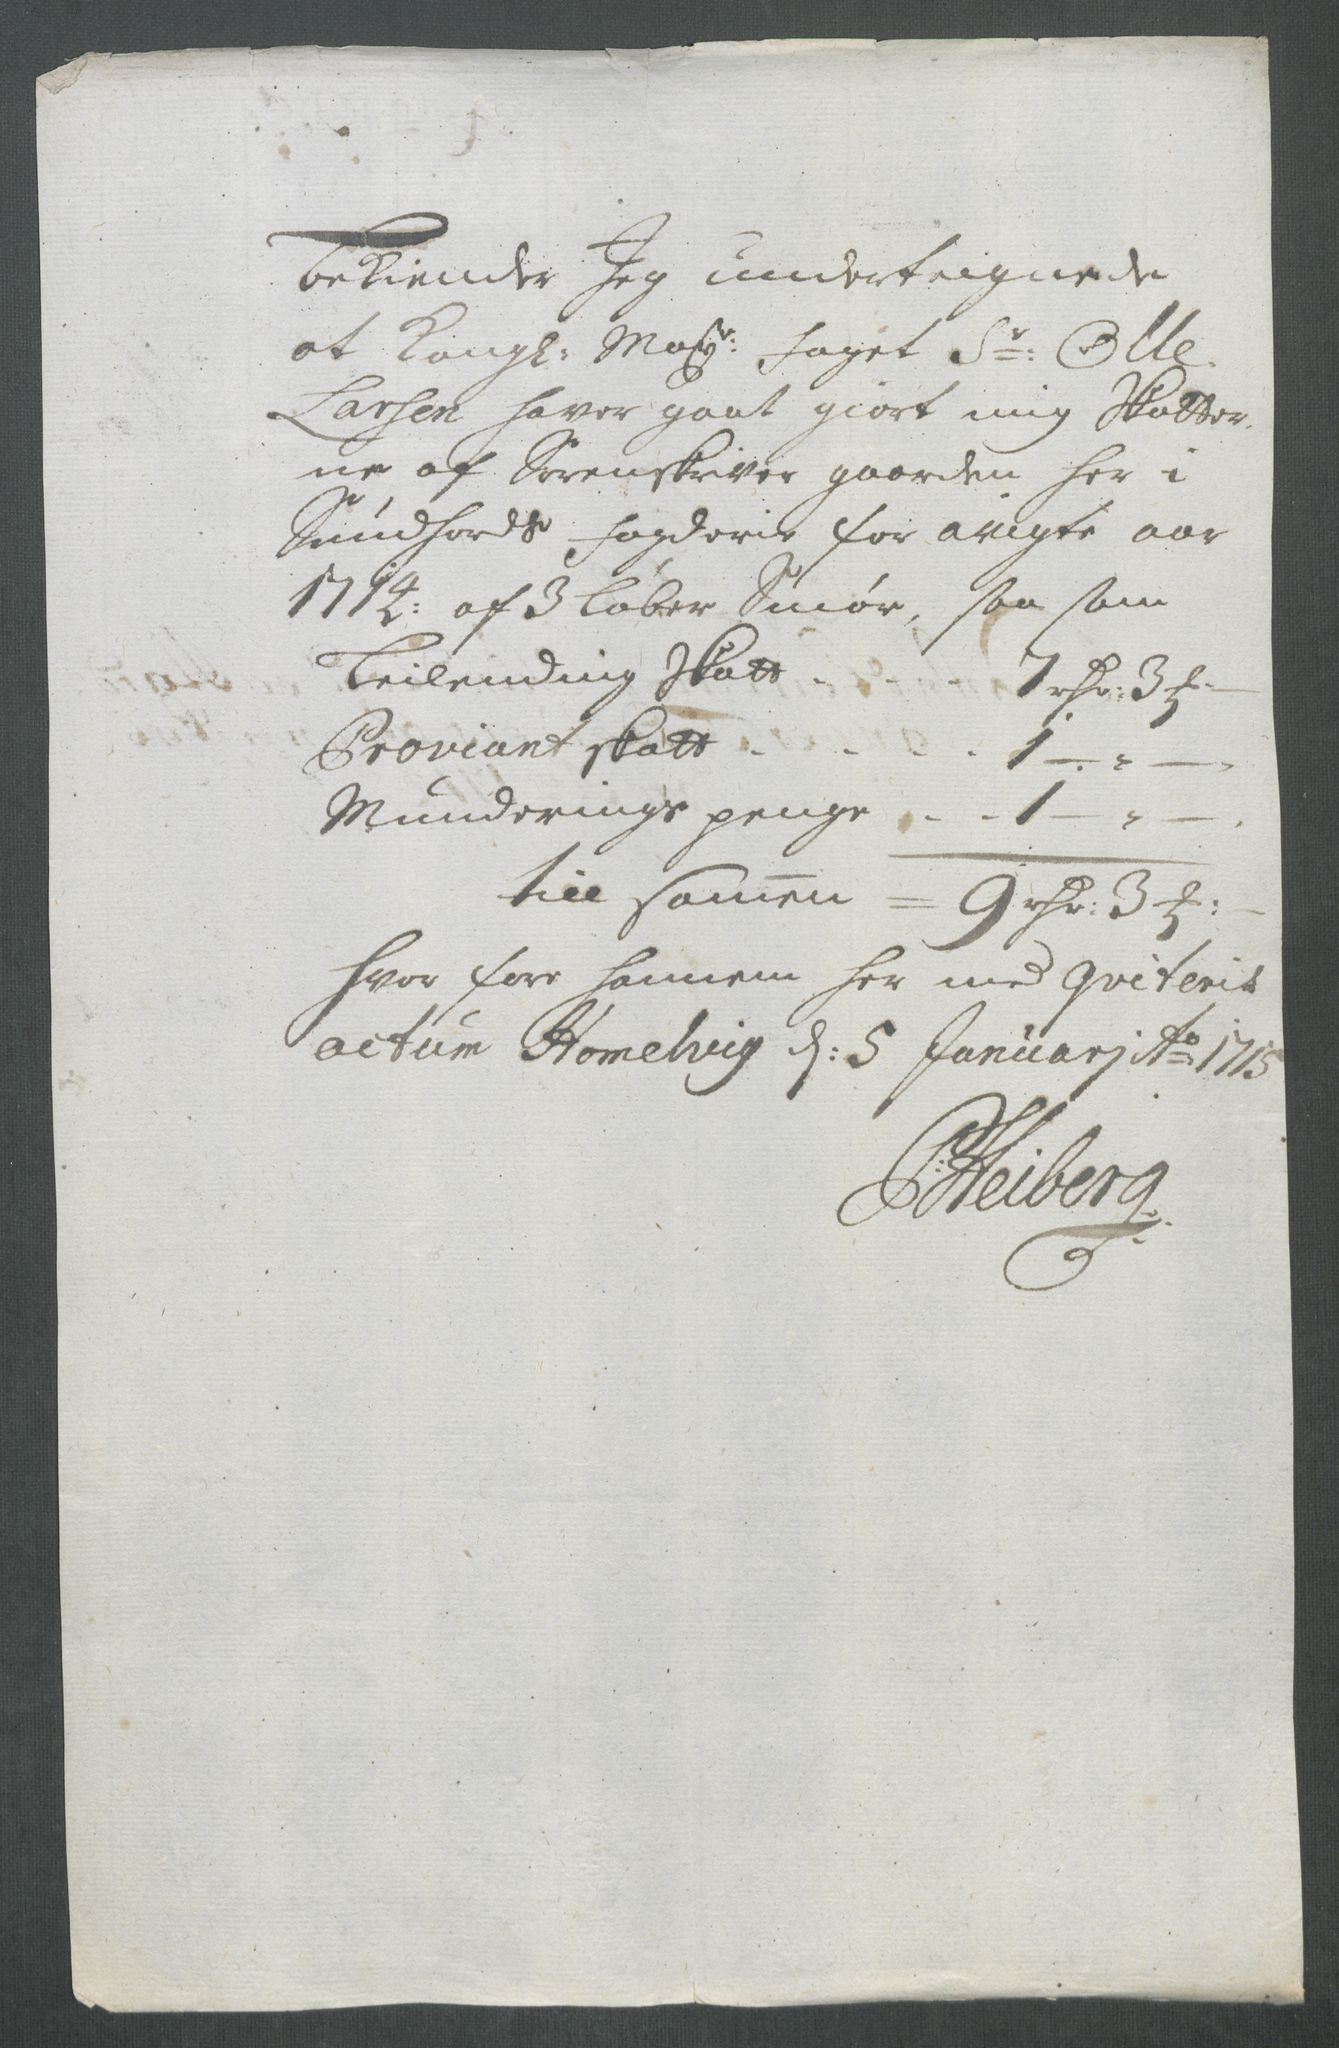 Bekiender Jeg underteignede
at Kongl: May:st: foget Sr: Olle
Larsen haver gaat giort mig Skatter-
ne af Sorenskriver gaarden her i
Sundhords fogderie for avigte aar
1714: af 3 løber Smør, saa som
Leilending Skatt - - - 7 rdr: 3 ₰ -
Proviant skatt - - - - 1 - " -
Munderings penge - - 1 - " -
till samen = 9 rdr: 3 ₰: -
hvor fore hannem her med qviteris
actum Homelvig d: 5 Januarj Ao 1715
P: Heiberg